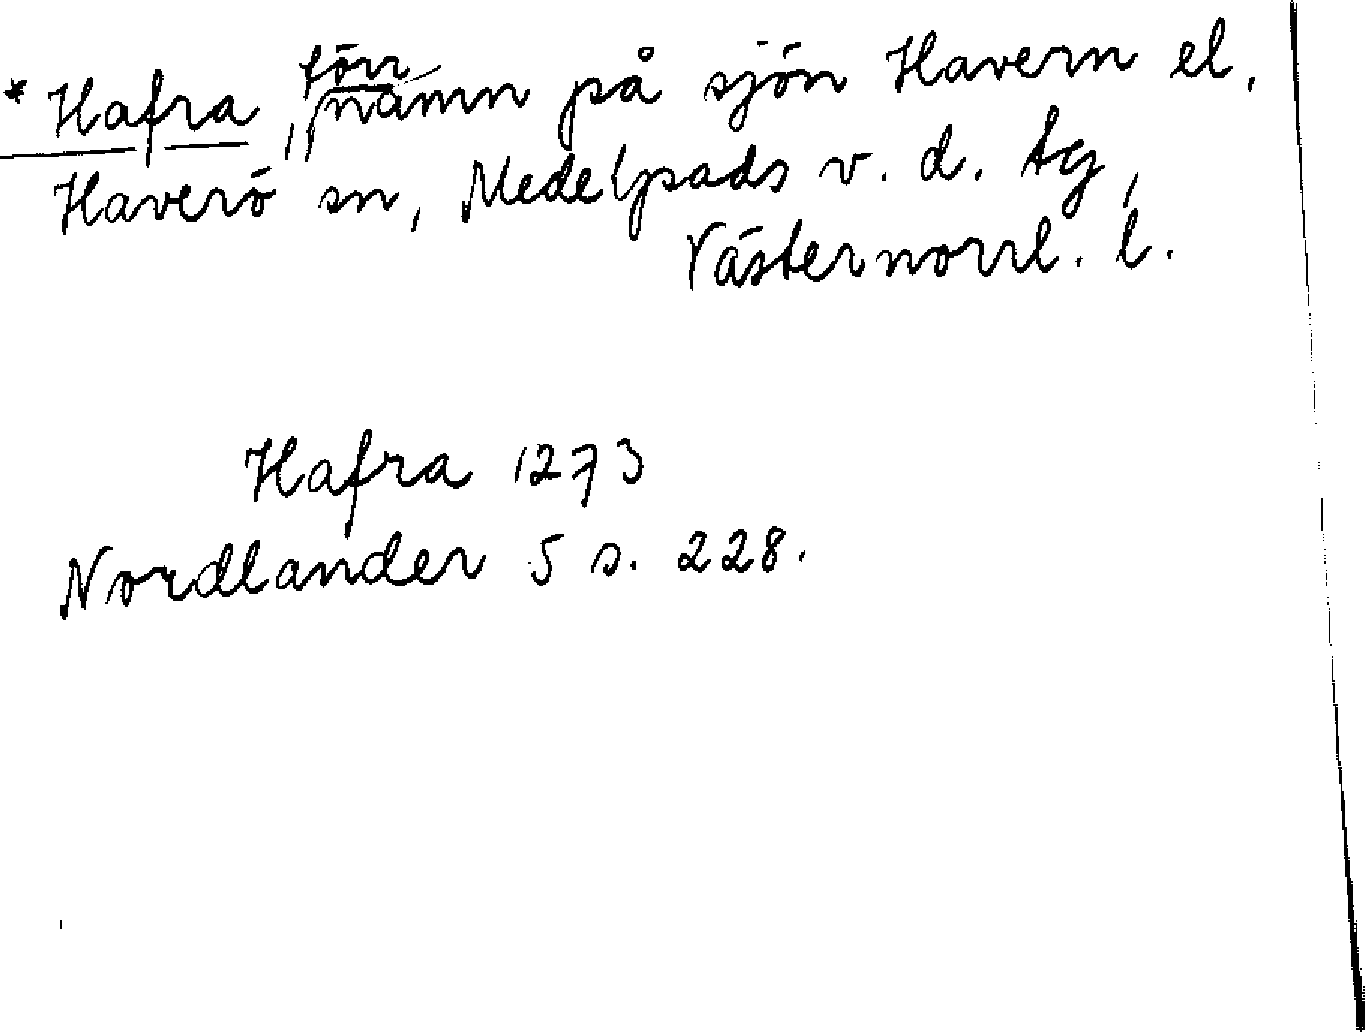 *Hafra, förr namn på sjön Havern el.
Haverö sn, Medelpads v. d. tg,
Västernorrl. l.
Hafra 1273
Nordlander 5 s. 228.